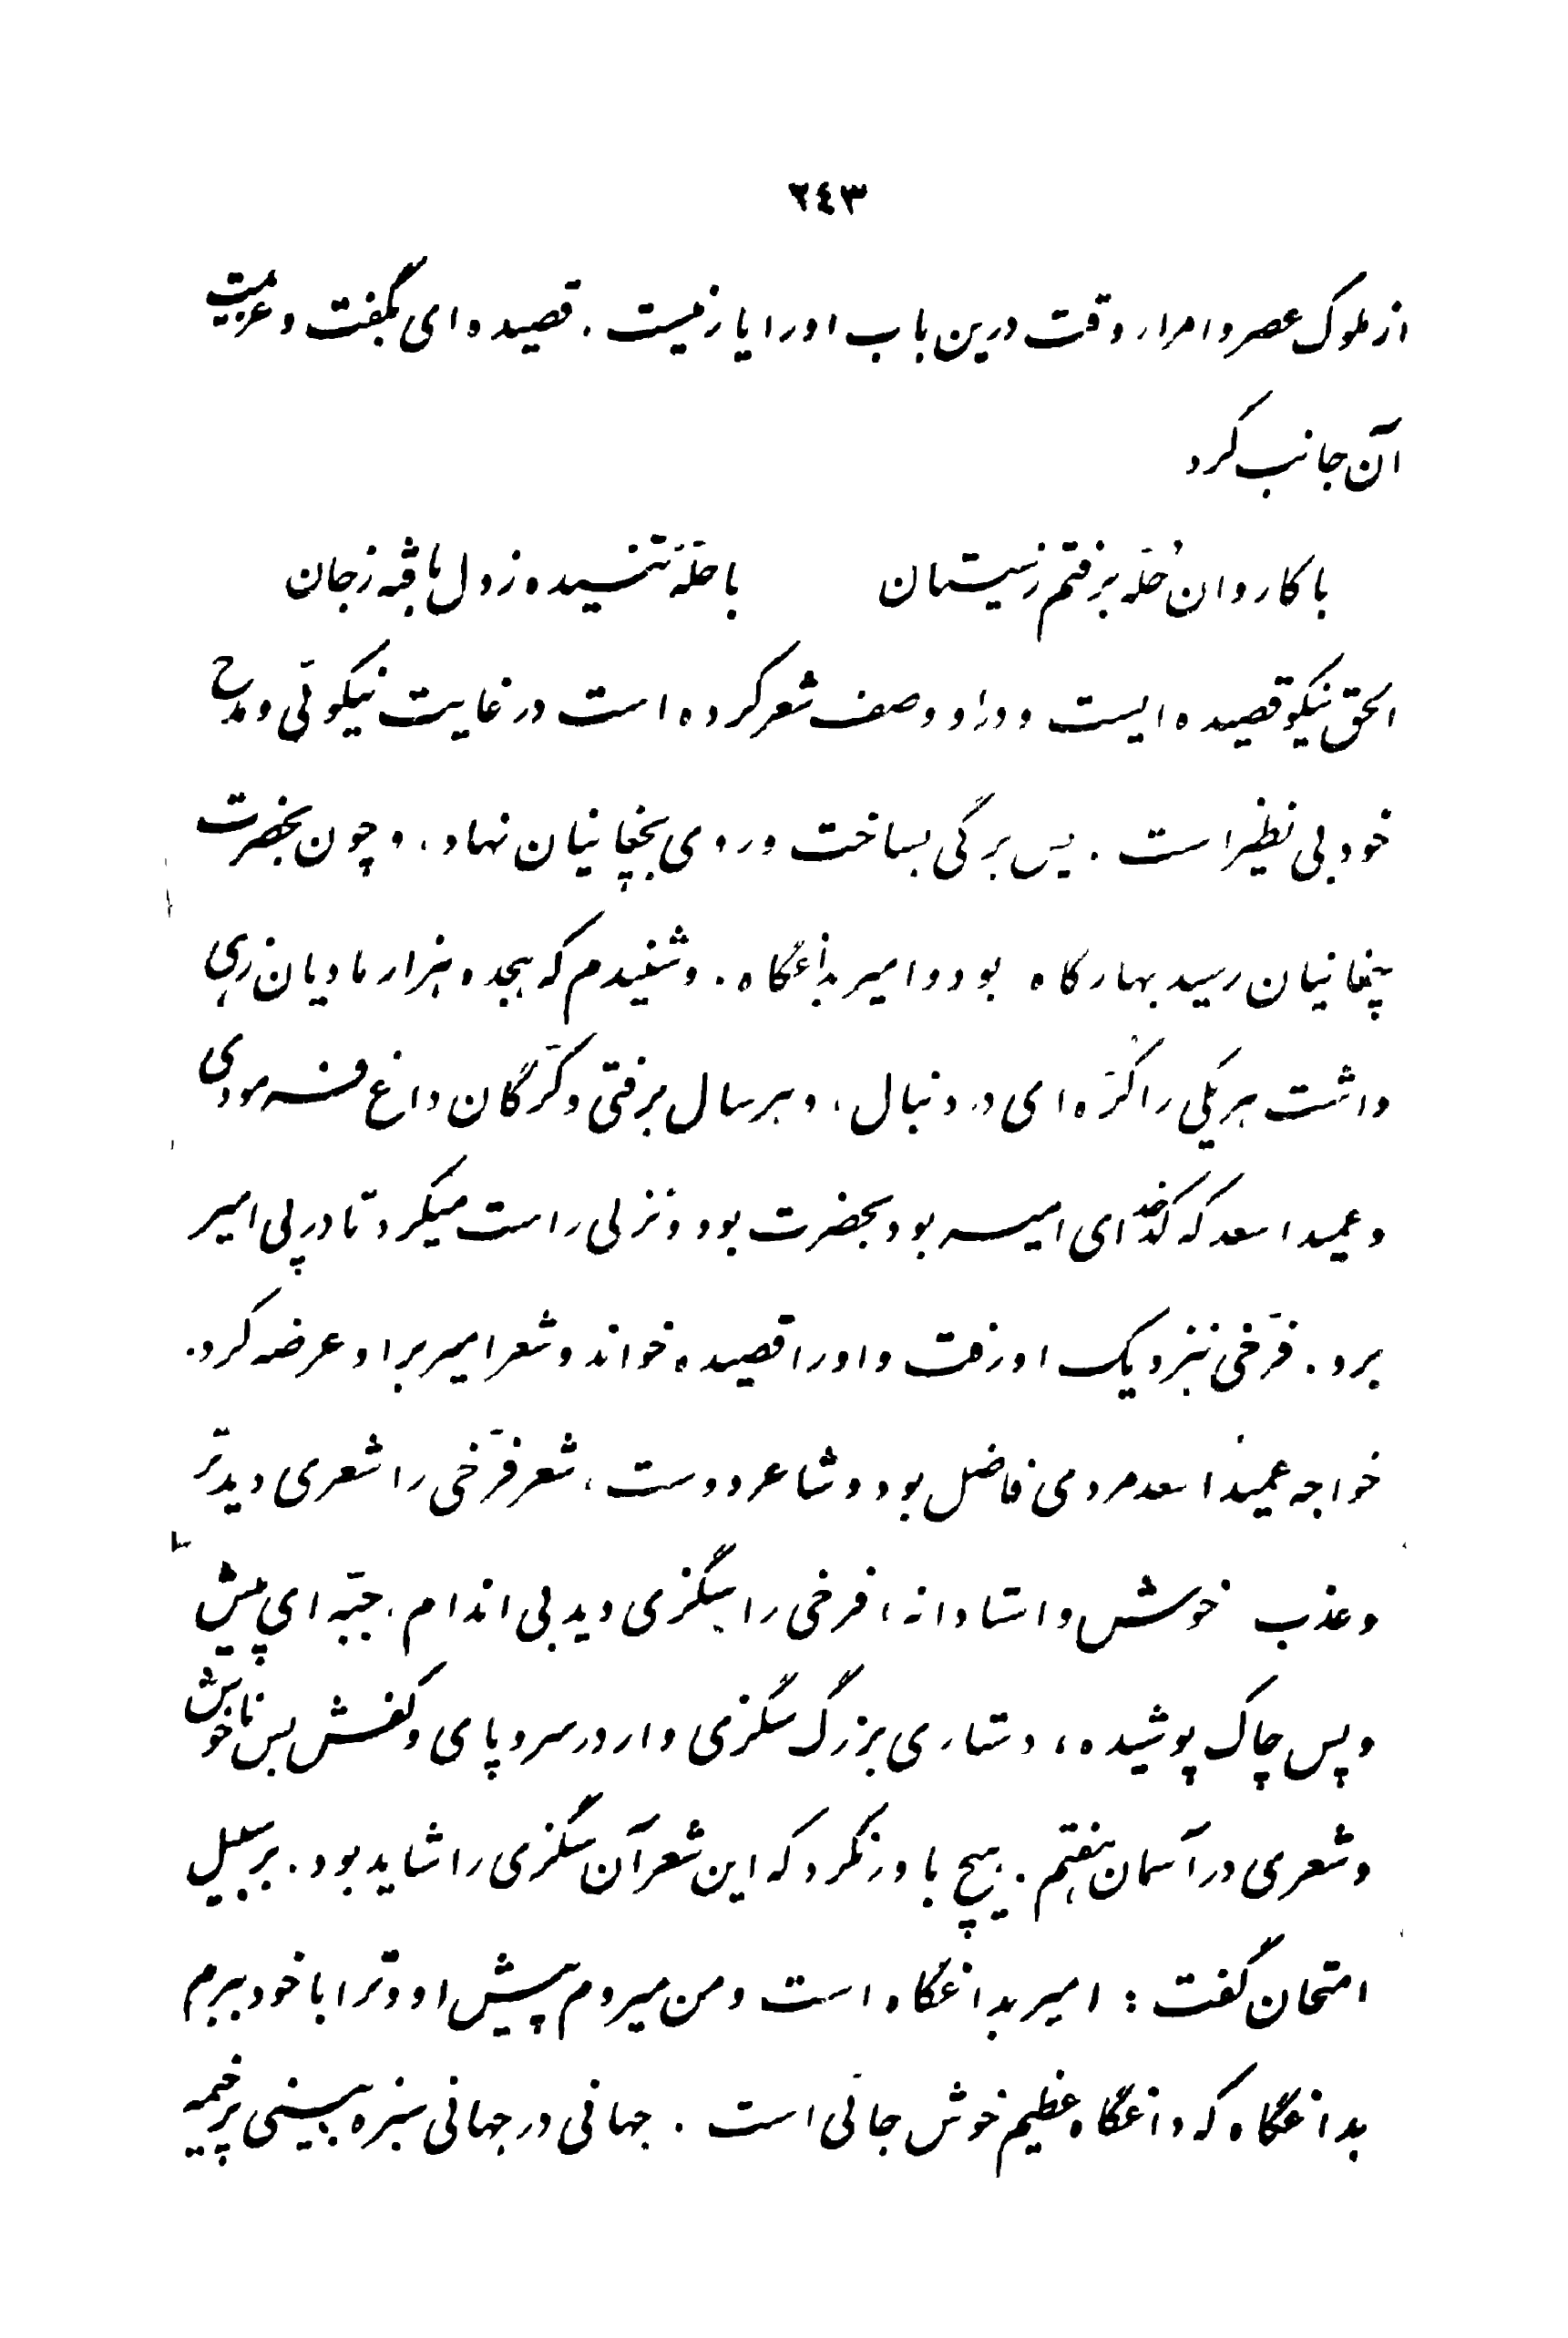 ٢٤٣
از ملوک عصر و امراء وقت درین باب او را یار نیست . قصیده ای بگفت و عزیمت
آن جانب کرد
با کاروان حُلّه برفتم ز سیستان با حلّهٔ تنیده ز دل بافته ز جان
الحق نیکو قصیده ایست و در او وصف شعر کرده است در غایت نیکوئی و مدح
خود بی نظیر است . پس برگی بساخت و روی بچغانیان نهاد . و چون بحضرت
چغانیان رسید بهارگاه بود و امیر بداغگاه . و شنیدم که هجده هزار مادیان زهی
داشت هر یکی را کُرّه ای در دنبال ، و هر سال برفتی و کرّگان داغ فرمودی
و عمید اسعد که کدخدای امیر بود بحضرت بود و نزلی راست میکرد تا در پی امیر
برد . فرّخی بنزدیک او رفت و او را قصیده خواند و شعر امیر بر او عرضه کرد .
خواجه عمید اسعد مردمی فاضل بود و شاعر دوست ، شعر فرّخی را شعری دید تر
و عذب خوش و استادانه ، فرخی را سگزی دید بی اندام ، جبّه ای پیش
و پس چاک پوشیده ، دستاری بزرگ سگزی وار در سر و پای و کفش بس ناخوش
و شعری در آسمان هفتم . هیچ باور نکرد که این شعر آن سگزی را شاید بود . بر سبیل
امتحان گفت : امیر بداغگاه است و من میروم پیش او و ترا با خود ببرم
بداغگاه که داغگاه عظیم خوش جائی است . جهانی در جهانی سبزه بینی پر خیمه